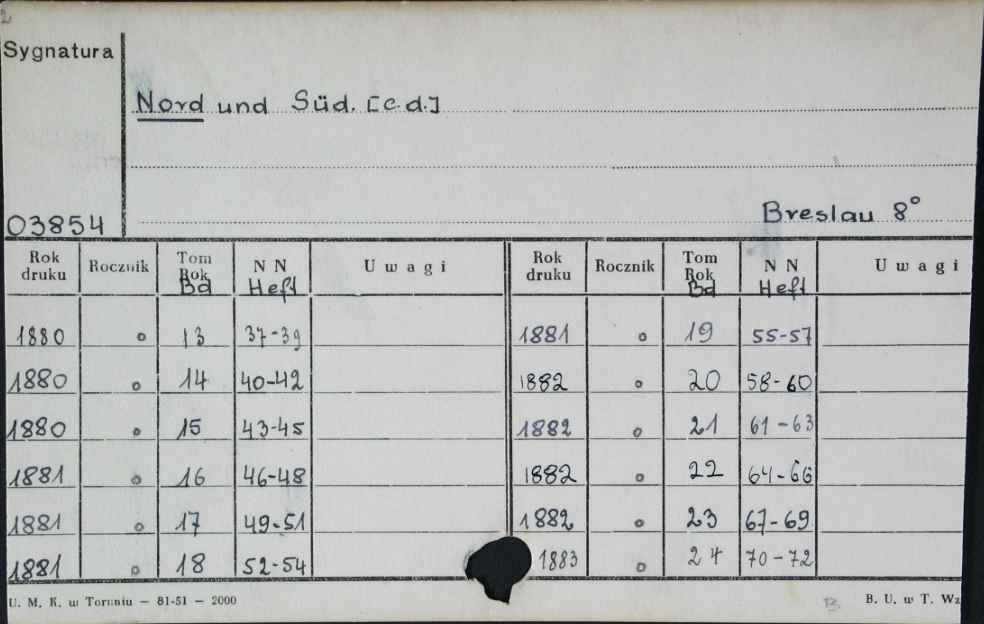 2
Sygnatura
Nord und Süd. [c.d.]
03854
Breslau 8°
Rok druku Rocznik Tom Rok Bd NN Heft Uwagi Rok druku Rocznik Tom Rok Bd NN Heft Uwagi
1880 o 13 37-39 1881 o 19 55-57
1880 o 14 40-42 1882 o 20 58-60
1880 o 15 43-45 1882 o 21 61-63
1881 o 16 46-48 1882 o 22 64-66
1881 o 17 49-51 1882 o 23 67-69
1881 o 18 52-54 1883 o 24 70-72
U. M. K. w Toruniu — 81-51 — 2000
B. U. w T. Wz